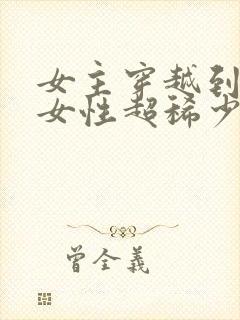 女主穿越到
女性超稀少
曾全義